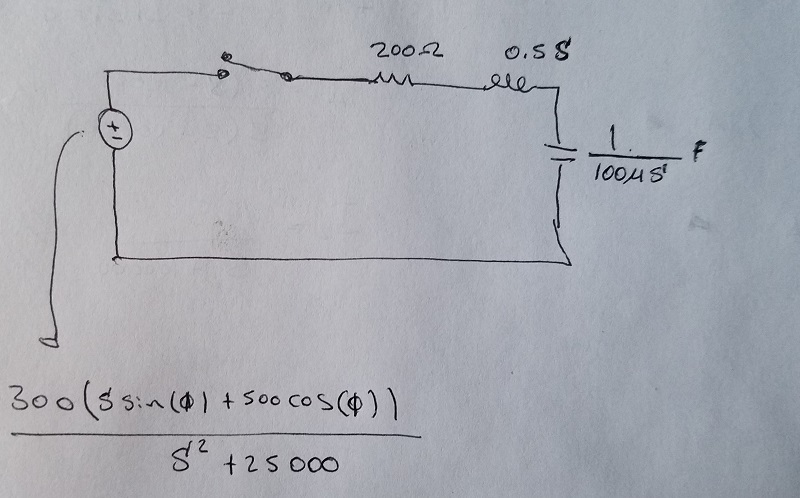 200Ω 0.5 S
+
-
1
100μS F
300(S sin(φ) + 500 cos(φ))
S² + 25000